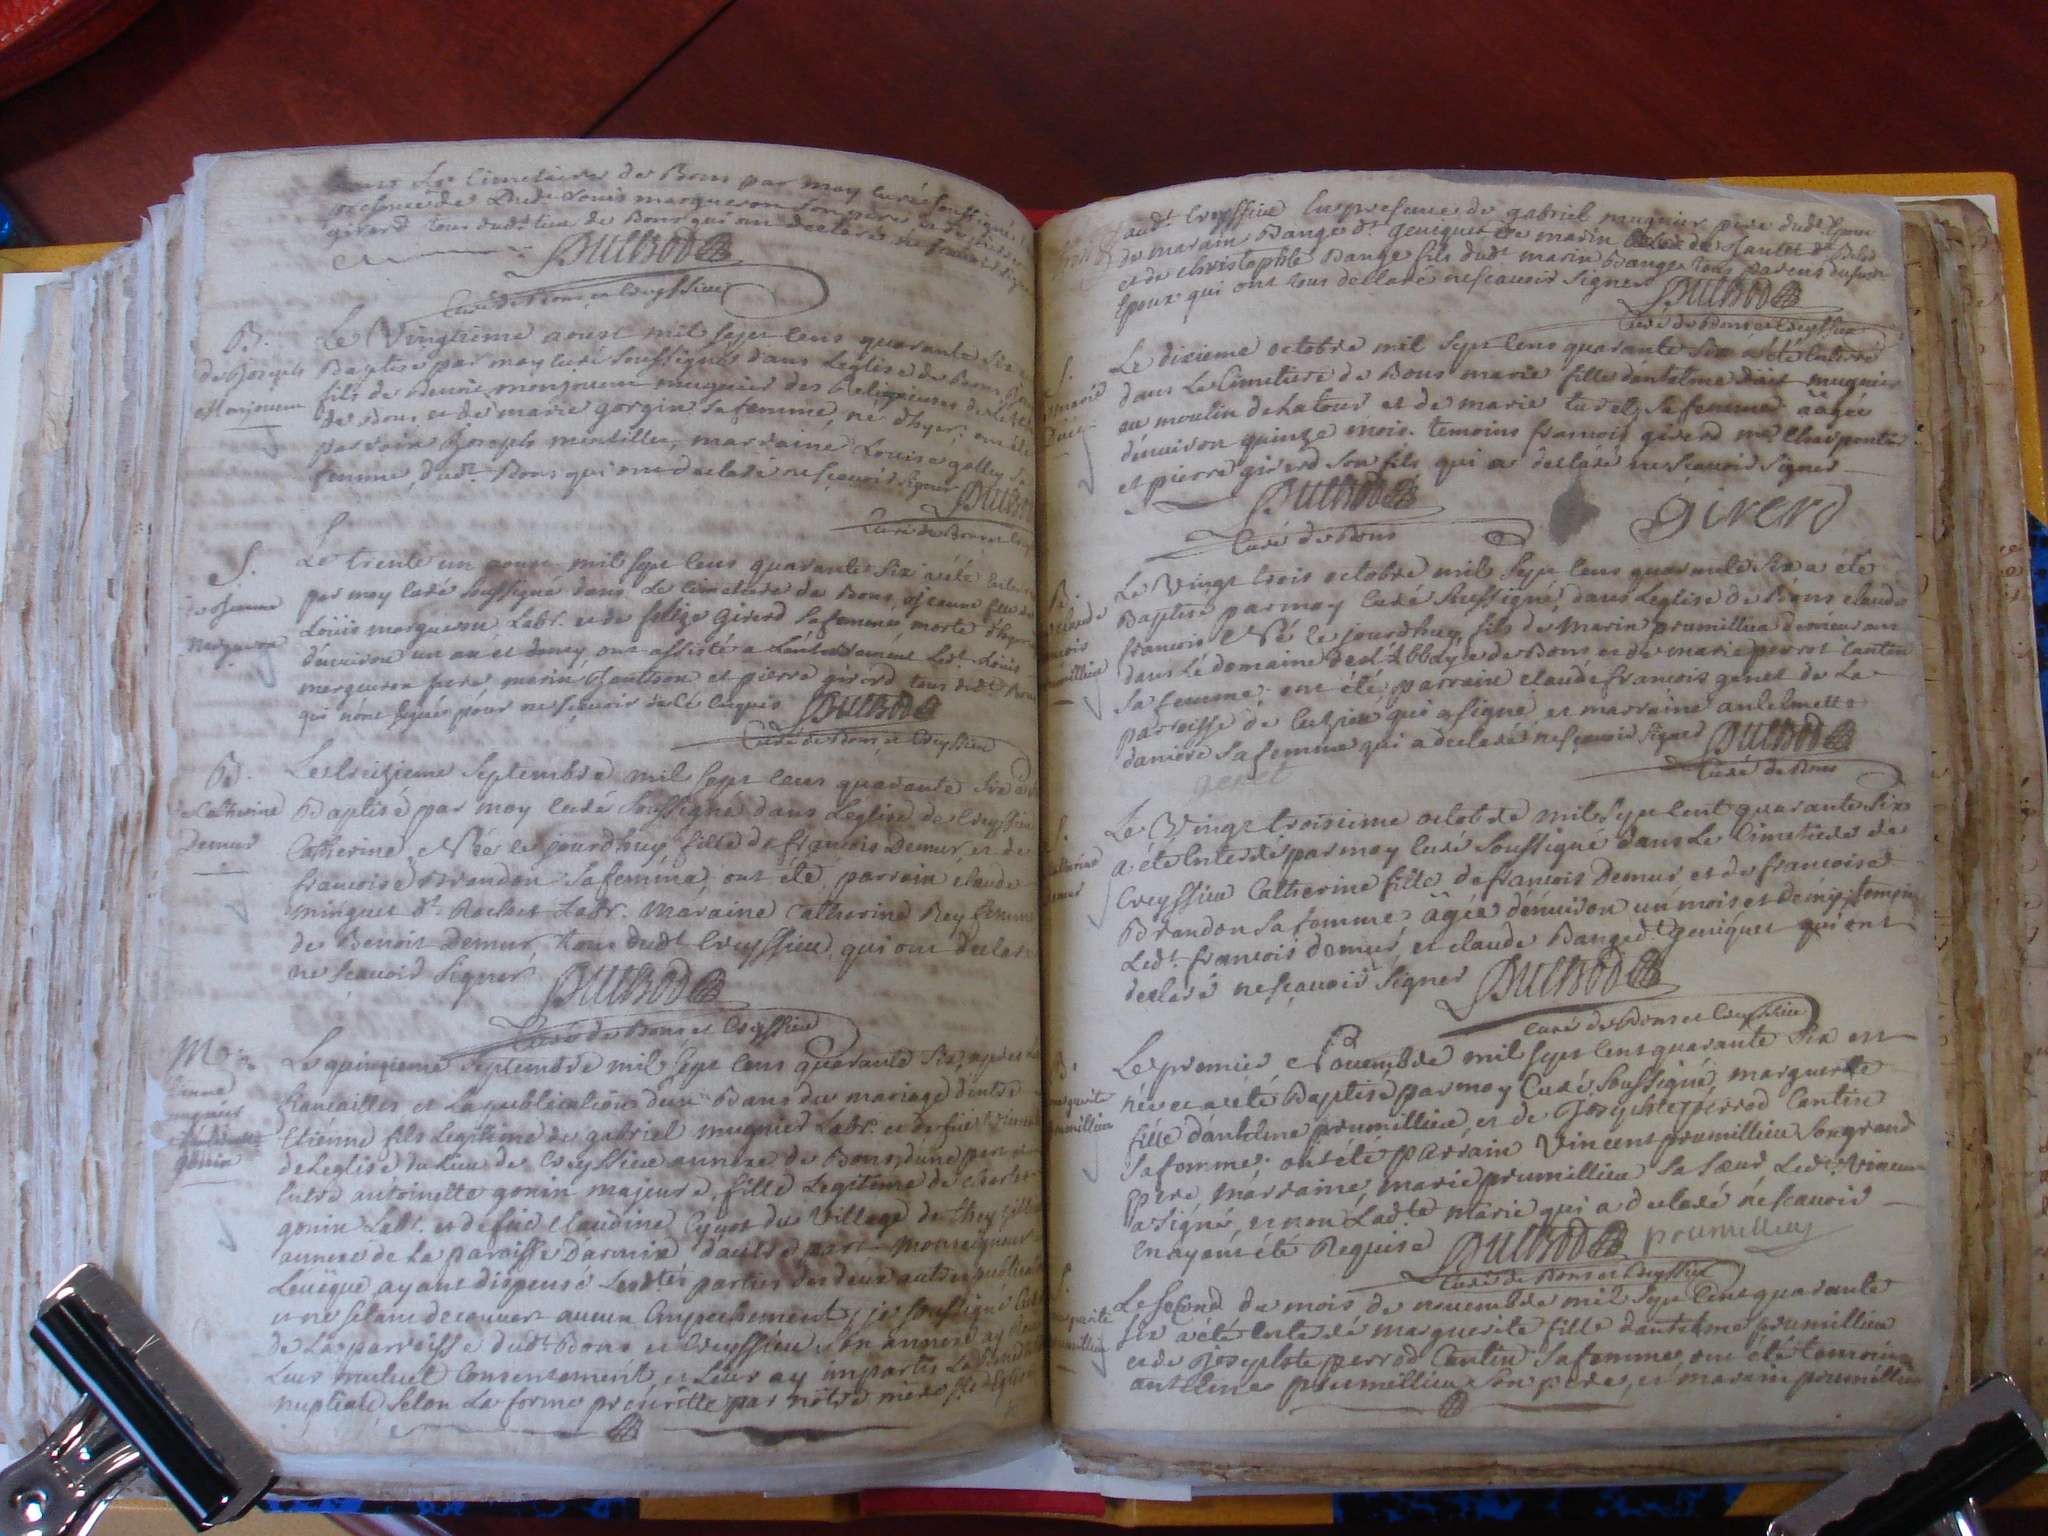 dans Le Cimetiere de Bons par moy curé soussigné
presence de Louis margueron son pere et de
girerd tous dudt lieu de Bons qui ont declaré ne scavoir signer
Dutrod
Curé de Bons et Creyssieu
B.
de Joseph
Monjoueu
Le Vingtieme aoust mil sept cens quarante six
Baptise par moy curé soussigné dans Leglise de Bons
fils de Benoit monjoueu mugnier des Religieuses de
de Bons et de marie gorgin sa femme, né d'hyer, ont été
parrain Joseph mentillet, marraine Louise golley sa
femme, dudt Bons qui ont declaré ne sçavoir signer
Curé de Bons et
S.
de Jeanne
Marguron
Le trente un aoust mil sept cens quarante six a été enterré
par moy curé soussigné dans Le cimetiere de Bons, Jeanne fille de
Louis margueron Labr. et de felize Girerd sa femme morte d'hyer
d'environ un an et demy, ont assisté a L'enterrement Ledt Louis
margueron pere, marin et pierre girerd tous dudt Bons
qui n'ont signés pour ne sçavoir de ce enquis Dutrod
Curé de Bons et Creyssieu
B.
de Catherine
Demur
Le treizieme Septembre mil sept cens quarante six a été
Baptisé par moy curé soussigné dans Leglise de Creyssieu
Catherine Née le jourdhuy fille de francois Demur et de
francoise Brandon sa femme, ont été parrain claude
minguet dt Rochet Labr. Maraine Catherine Rey femme
de Benoit Demur, tous dudt Creyssieu, qui ont declaré
ne scavoir signer Dutrod
Curé de Bons et Creyssieu
M.
Etienne
mugnier
gonin
Le quinzieme Septembre mil sept cens quarante six, apres Les
fiancailles et La publication d'un Bans du mariage d'entre
Etiénne fils Legitime de gabriel mugnier Labr. et de fue
de Leglise du lieu de Creyssieu annexe de Bons, d'une part et
entre antoinette gonin majeure, fille Legitime de
gonin Labr. et de fue claudine Cyvot du Village de
annexe de La paroisse d'armix d'autre part Monseigneur
Leveque ayant dispensé Lesdtes parties des deux autres publications
et ne s'étant decouvert aucun Empechement, je soussigné Curé
de La parroisse dudt Bons et Creyssieu son annexe ay Receu
Leur mutuel Consentement, et Leur ay impartis La Benediction
nuptiale, selon La forme préscritte par nôtre mere Ste Eglise
audt Creyssieu En presence de gabriel mugnier pere dudt Epoux
de marain Bange dt geniquet de marin
et de christophle Bange fils dudt marin Bange tous parens dudt
Epoux qui ont tous declaré ne scavoir signer Dutrod
Curé de Bons et Creyssieu
S.
Marie
Le dixieme octobre mil sept cens quarante six a été Enterré
dans Le Cimetiere de Bons marie fille dantelme mugnier
au moulin de La tour et de marie sa femme âgée
d'environ quinze mois. temoins francois girerd me Charpentier
et pierre girerd son fils qui a declaré ne scavoir signer
Dutrod
Girerd
Curé de Bons
B.
claude
francois
prumillieu
Le Vingt trois octobre mil sept cens quarante six a été
Baptisé par moy Curé Soussigné, dans Leglise de Bons claude
francois Né le jourdhuy fils de Marin prumillieu demeurant
dans Le domaine de L'Abbaye de Bons et de marie perrot Cantin
sa femme: ont été parrain claude francois genet de La
paroisse de Cutzieu qui a signé et marraine antelmette
daniere sa femme qui a declaré ne scavoir signer Dutrod
Curé de Bons
genet
S.
Catherine
Demur
Le Vingt troisieme octobre mil Sept Cent quarante six
a été Enterré par moy Curé Soussigné dans Le Cimetiere de
Creyssieu Catherine fille de francois Demur et de francoise
Brandon sa femme, âgée d'environ un mois et demy, temoins
Ledt francois demur, et claude Bange dt geniquet qui ont
declaré ne sçavoir signer Dutrod
Curé de Bons et Creyssieu
B.
marguerite
prumillieu
Le premier Novembre mil sept cens quarante six est
née et a été Baptisé par moy Curé Soussigné, marguerite
fille d'antelme prumillieu et de Josephte perrod Cantin
sa femme; ont été parrain Vincent prumillieu son grand
pere, marraine, marie prumillieu sa soeur, Ledt Vincent
a signé, et non Ladte marie qui a declaré ne scavoir
En ayant été Requise Dutrod prumillieu
Curé de Bons et Creyssieu
S.
marguerite
prumillieu
Le second du mois de novembre mil sept Cens quarante
six a été Enterré marguerite fille d'antelme prumillieu
et de Josephte perrod Cantin sa femme, ont été temoins
antelme prumillieu son pere, et marain prumillieu